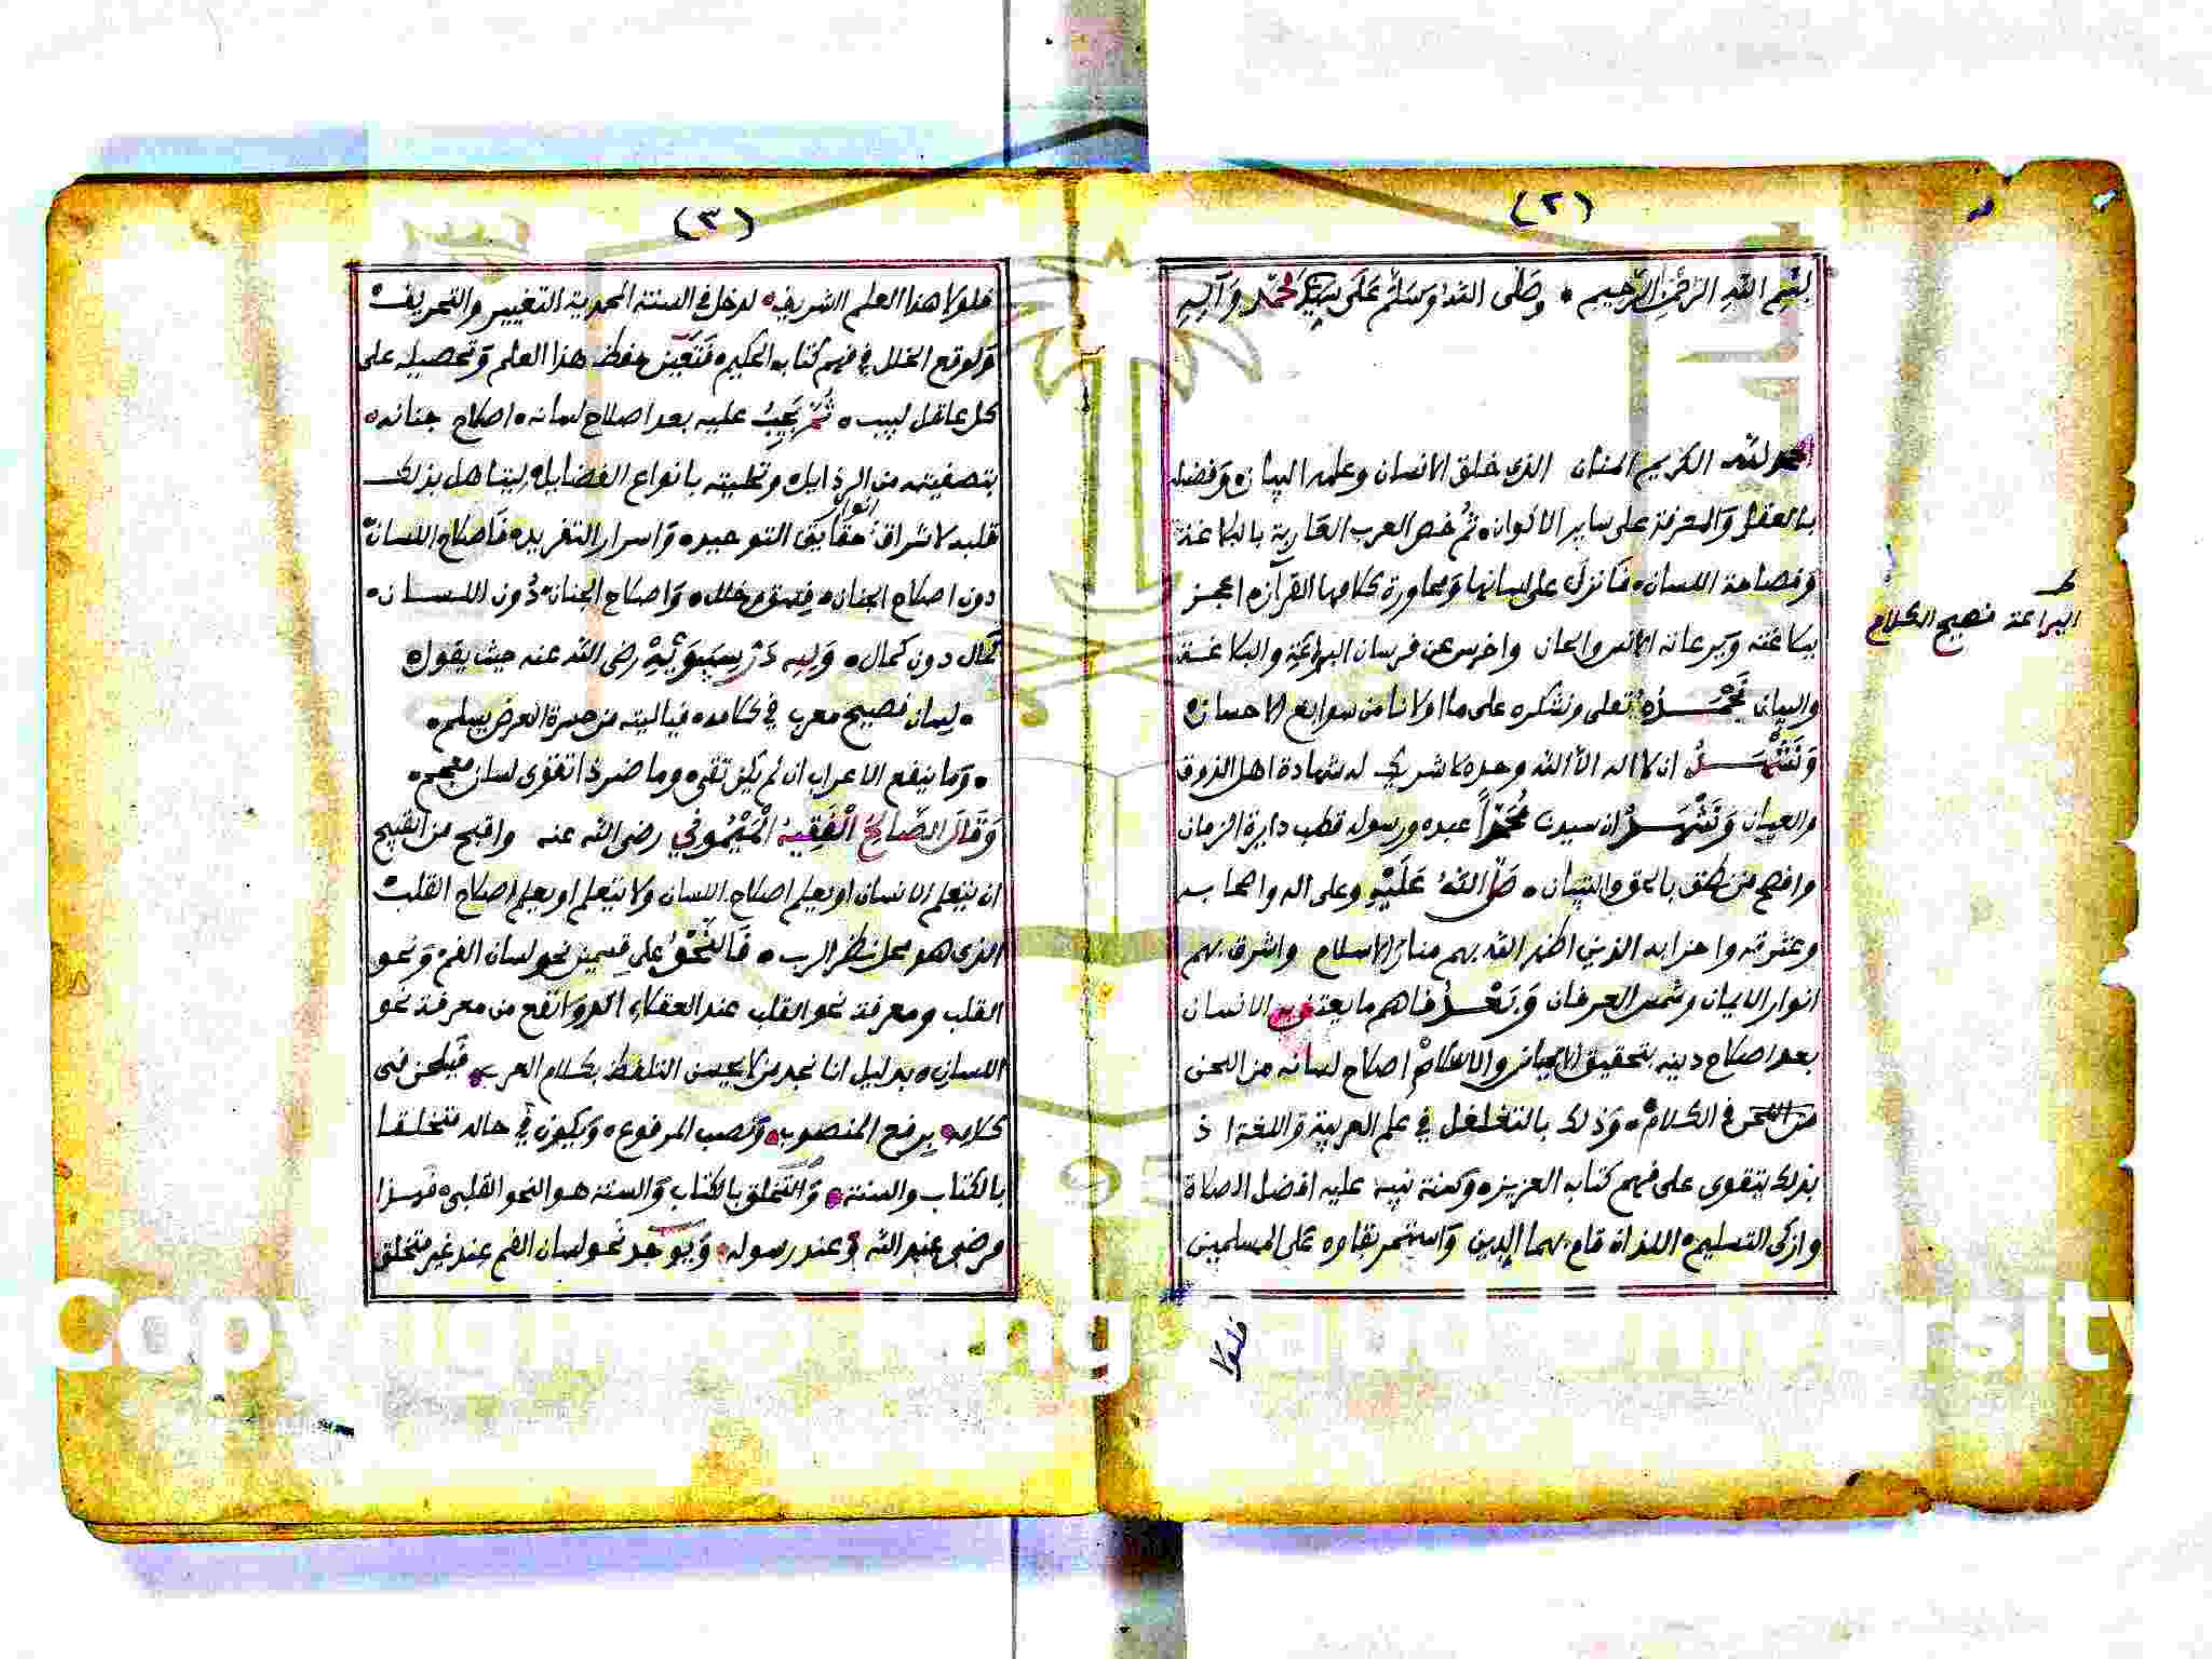 (٢)
بسم الله الرحمن الرحيم • وصلى الله وسلم على سيدنا محمد وآله
الحمد لله الكريم المنان الذي خلق الانسان وعلمه البيان وفضله
بالعقل والمعرفة على ساير الاكوان ثم خص العرب العاربة بالبلاغة
وفصاحة اللسان فانزل على لسانها ومحاورة كلامها القرآن المعجز
ببلاغته الانس والجان واخرس عن فرسان البراعة والبلاغة
والبيان نحمده تعلى ونشكره على ما اولانا من سوابغ الاحسان
ونشهد ان لا اله الا الله وحده لا شريك له شهادة اهل الذوق
والعيان ونشهد ان سيدنا محمدا عبده ورسوله قطب دايرة الزمان
وافصح من نطق بالحق والتبيان • صلى الله عليه وعلى اله واصحابه
وعترته واحزابه الذين اظهر الله بهم منار الاسلام واشرق بهم
انوار الايمان وشمس العرفان وبعد فاهم ما يعتني به الانسان
بعد اصلاح دينه بتحقيق الايمان والاسلام اصلاح لسانه من اللحن
من اللحن في الكلام • وذلك بالتغلغل في علم العربية واللغة اذ
بذلك يتقوى على فهم كتاب العزيز وسنة نبيه عليه افضل الصلاة
وازكى التسليم اللذان قام بهما الدين واستمر بقاوه على المسلمين
فلولا
ط
البراعة فصيح الكلام
(٣)
فلولا هذا العلم الشريف • لدخل في السنة المحمدية التغيير والتحريف
ولوقع الخلل في فهم كتابه الحكيم • فتعين حفظ هذا العلم وتحصيله على
كل عاقل لبيب • ثم يجب عليه بعد اصلاح لسانه • اصلاح جنانه
بتصفيته من الرذايل • وتحليته بانواع الفضايل • ليتاهل بذلك
قلبه لاشراق انوار حقايق التوحيد • واسرار التفريد • فاصلاح اللسان
دون اصلاح الجنان • فسق وخلل • واصلاح الجنان دون اللسان •
كمال دون كمال • ولله در سيبويه رضى الله عنه حيث يقول
• لسان فصيح معرب في كلامه • فيا ليته من حسرة العرض يسلم •
• وما ينفع الاعراب ان لم يكن تقى • وما ضر ذا تقوى لسان معجم •
وقال الصالح الفقيه الميموني رضى الله عنه واقبح من القبيح
ان يتعلم الانسان او يعلم اصلاح اللسان ولا يتعلم او يعلم اصلاح القلب
الذى هو محل نظر الرب • فالنحو على قسمين نحو لسان الفم ونحو
القلب ومعرفة نحو القلب عند العقلاء اكد وانفع من معرفة نحو
اللسان • بدليل انا نجد من لا يحسن التلفظ بكلام العرب • فيلحن فى
كلامه • يرفع المنصوب • وينصب المرفوع • ويكون في حاله متخلقا
بالكتاب والسنة • والتخلق بالكتاب والسنة هو النحو القلبى • فهذا
مرضى عند الله وعند رسوله • ويوجد نحو لسان الفم عند غير متخلق
Copyright © King Saud University